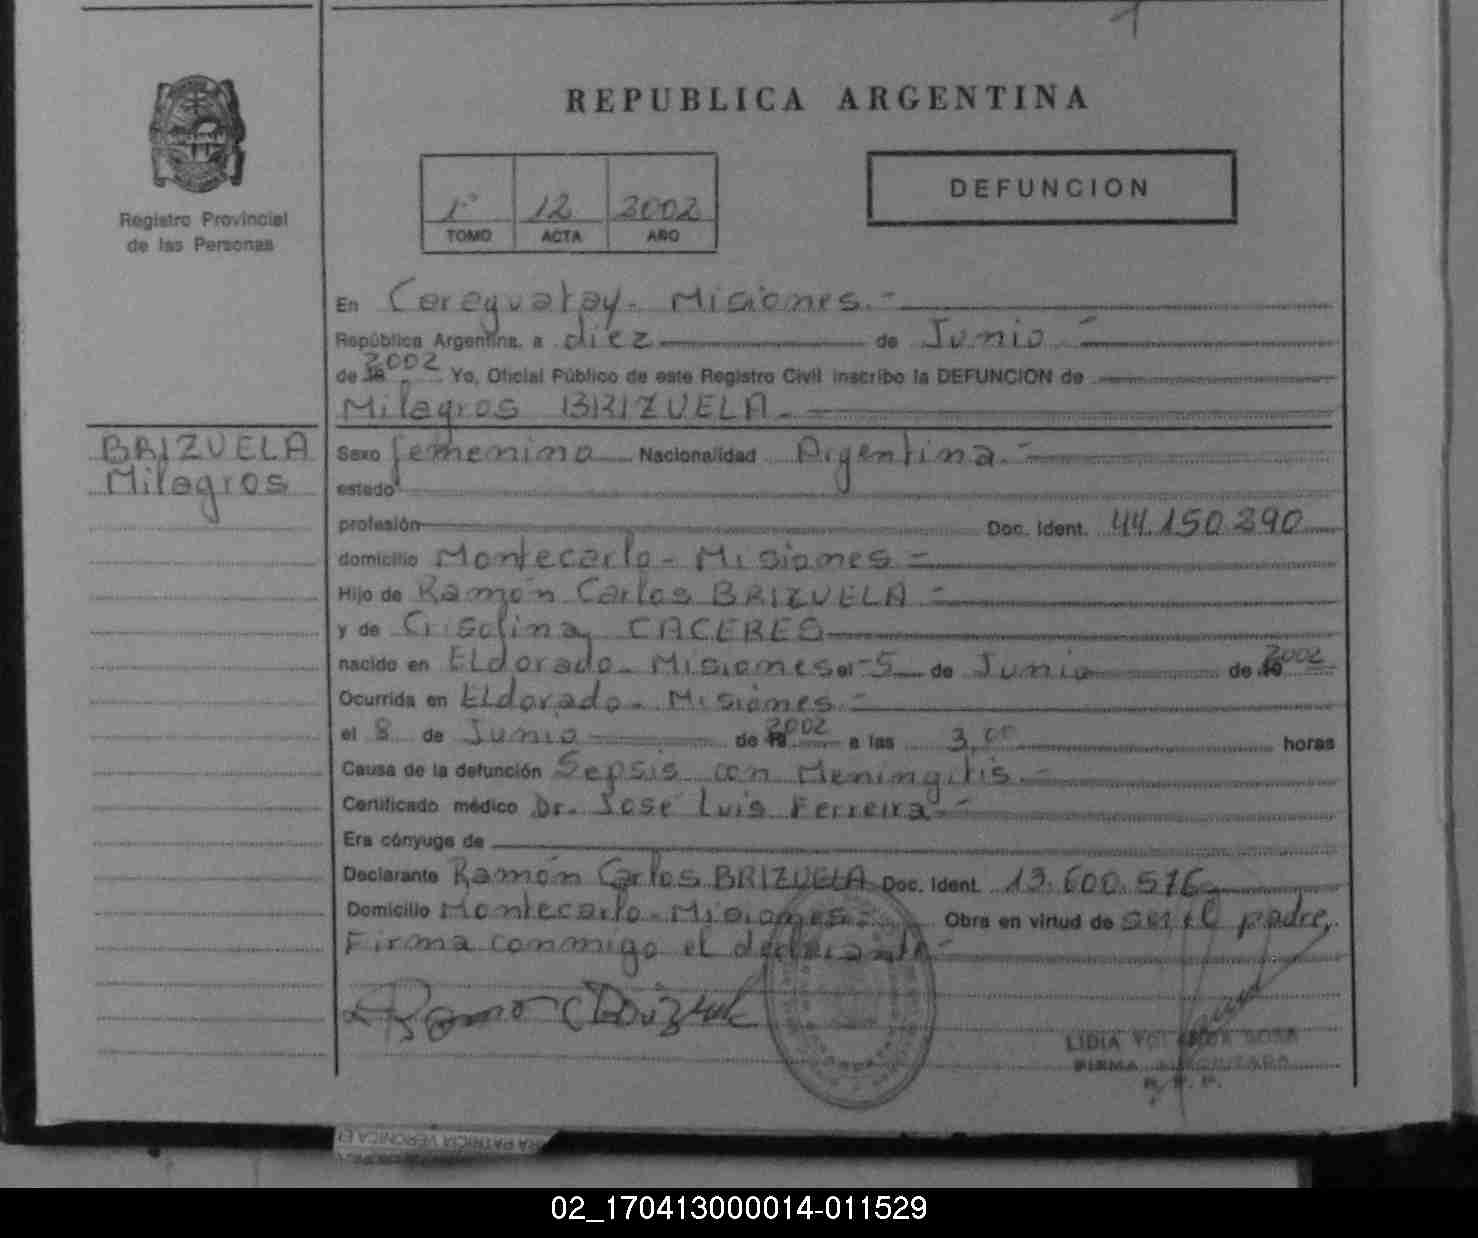 REPUBLICA ARGENTINA
Registro Provincial
de las Personas
1º 12 2002
TOMO ACTA AÑO
DEFUNCION
En Caraguatay - Misiones.-
República Argentina, a diez de Junio -
de 19 2002 Yo, Oficial Público de este Registro Civil inscribo la DEFUNCION de
Milagros BRIZUELA -
BRIZUELA
Milagros
Sexo femenino Nacionalidad Argentina.-
estado
profesión Doc. Ident. 44.150.390
domicilio Montecarlo - Misiones -
Hijo de Ramón Carlos BRIZUELA -
y de Crisolina CACERES
nacido en ELdorado - Misiones el 5 de Junio de 19 2002
Ocurrida en ELdorado - Misiones -
el 8 de Junio de 19 2002 a las 3,00 horas
Causa de la defunción Sepsis con Meningitis.-
Certificado médico Dr. José Luis Ferreira -
Era cónyuge de
Declarante Ramón Carlos BRIZUELA Doc. Ident. 13.600.576
Domicilio Montecarlo - Misiones - Obra en virtud de ser el padre,
Firma conmigo el declarante -
Ramon C Brizuela
LIDIA SOSA
FIRMA AUTORIZADA
R. P. P.
02_170413000014-011529